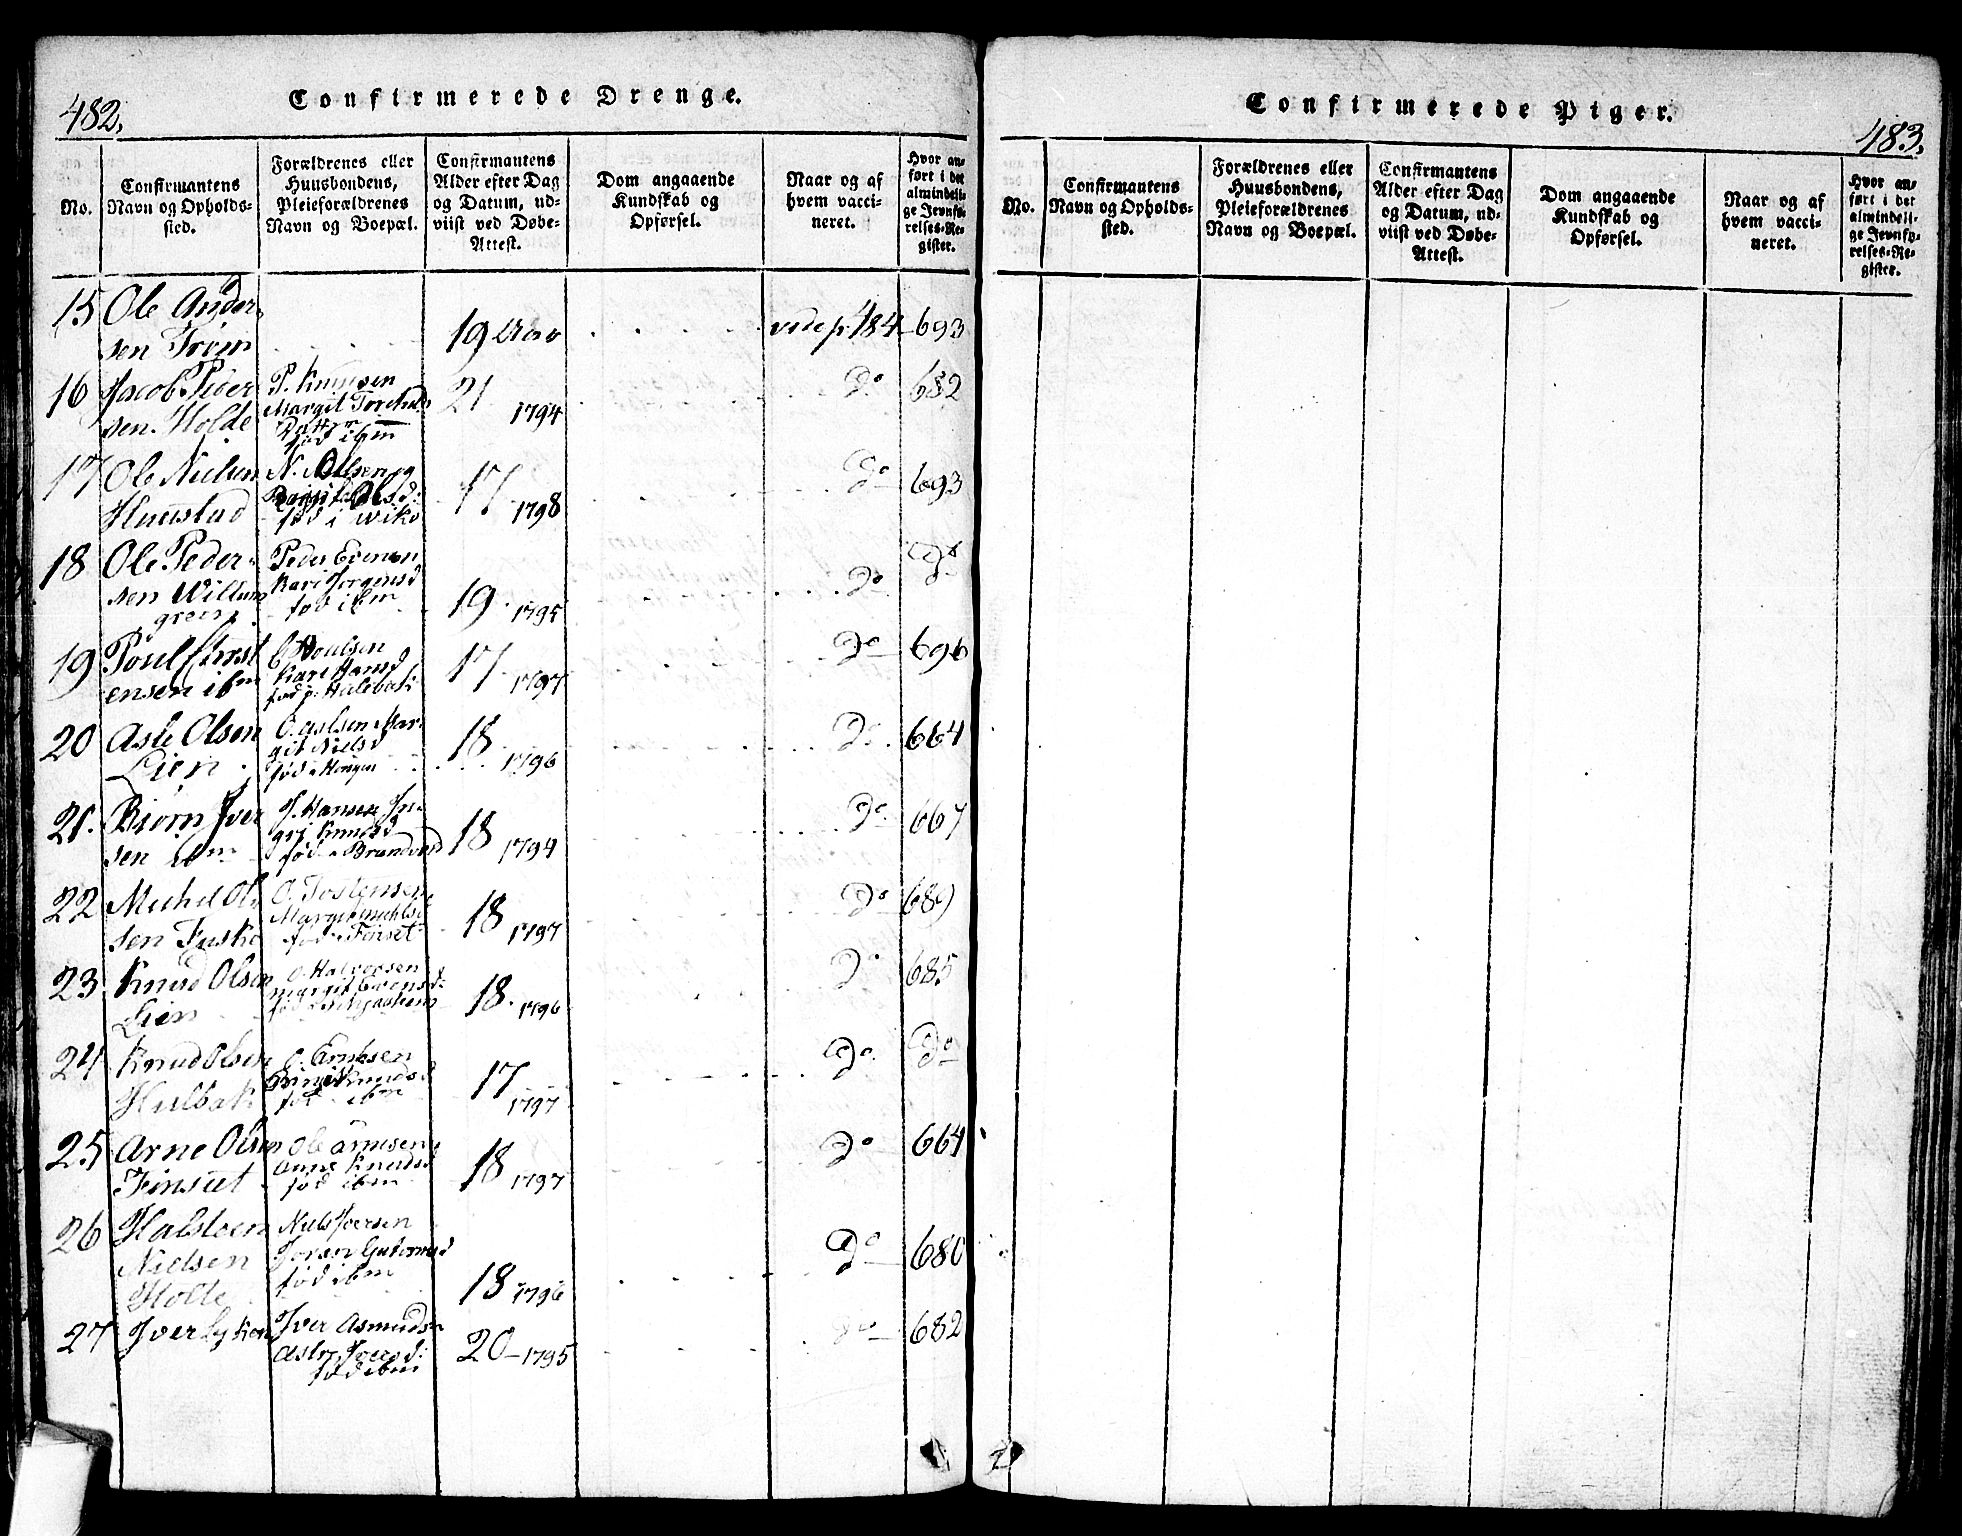 482.
Confirmerede Drenge.
No.
Confirmantens
Navn og Opholds-
sted.
Forældrenes eller
Huusbondens,
Pleieforældrenes
Navn og Boepæl.
Confirmantens
Alder efter Dag
og Datum, ud-
viist ved Døbe-
Attest.
Dom angaaende
Kundskab og
Opførsel.
Naar og af
hvem vacci-
neret.
Hvor an-
ført i det
almindeli-
ge Jevnfø-
relses-Re-
gister.
15 Ole Ander
sen 19 Aar vide p. 484 693
16 Jacob Peder
sen Holde
P. Knudsen
Margit
fød ibm
21 1794 Do 682
17 Ole Nielsen
N. Olsen og
fød i
17 1798 Do 693
18 Ole Peder
sen
Peder Evensen
Kari Jørgensd
fød ibm
19. 1795 Do Do
19 Poul Christ
ensen ibm
C. Poulsen
Kari Hansd
fød p. Hulebak
17 1797 Do 696
20 Asle Olsen
Lien
O. Aslsen Mar
git Nielsd
fød
18 1796 Do 664
21. Biørn Iver
sen ibm
J. Hansen In
gri Knudsd
fød Brandvold
18 1794 Do 667
22 Michel Ol
sen
O. Tostensen
Margit Michlsd
fød
18 1797 Do 689
23 Knud Olsen
Lien
O. Halvorsen
Margit Evensd:
fød
18. 1796 Do 685
24 Knud Olsen
Hulbak
O. Arnesen
Birgit Knudsd
fød ibm
17 1797 Do Do
25 Arne Olsen
Finset
Ole Arnesen
Anne Knudsd
fød ibm
18 1797 Do 664
26 Halsteen
Nielsen
Holte
Niels Iversen
Joran
fød ibm
18 1796 Do 680
27 Iver
Iver Asmuds
Astr. Iversd:
fød ibm
20 - 1795 Do 682
Confirmerede Piger.
483.
No.
Confirmantens
Navn og Opholds-
sted.
Forældrenes eller
Huusbondens,
Pleieforældrenes
Navn og Boepæl.
Confirmantens
Alder efter Dag
og Datum, ud-
viist ved Døbe-
Attest.
Dom angaaende
Kundskab og
Opførsel.
Naar og af
hvem vacci-
neret.
Hvor an-
ført i det
almindeli-
ge Jevnfø-
relses-Re-
gister.